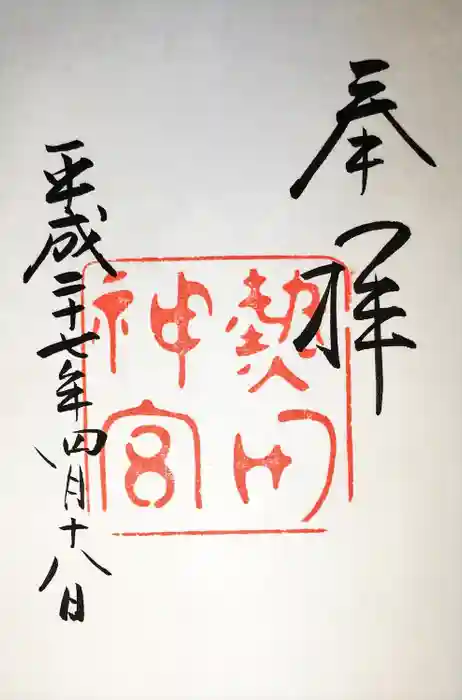 奉拝
熱田
神宮
平成二十七年四月十八日